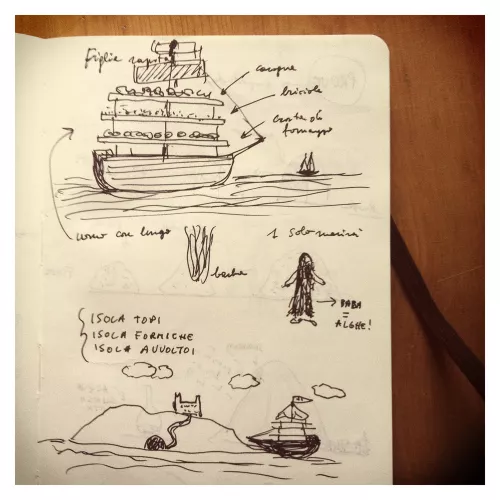 Figlia rapita
carogne
briciole
croste di
formaggio
uomo con lunga
barba
1 solo marinaio
BABA
=
ALGHE!
ISOLA TOPI
ISOLA FORMICHE
ISOLA AVVOLTOI